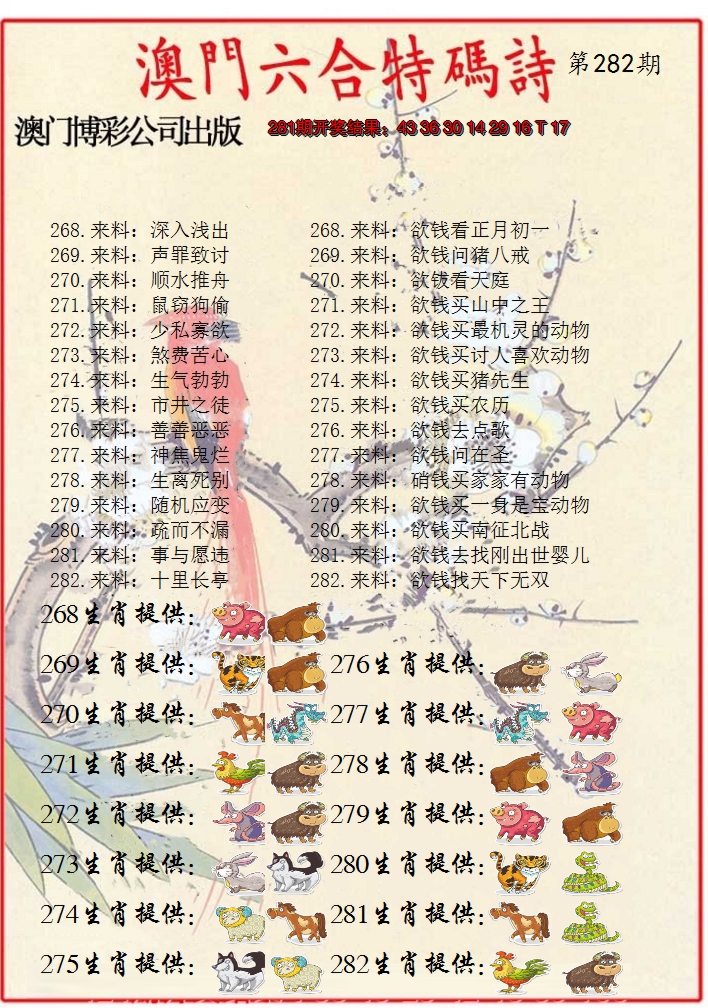 澳門六合特碼詩 第282期
澳门博彩公司出版 281期开奖结果：43 36 30 14 29 16 T 17
268.来料：深入浅出 268.来料：欲钱看正月初一
269.来料：声罪致讨 269.来料：欲钱问猪八戒
270.来料：顺水推舟 270.来料：欲钱看天庭
271.来料：鼠窃狗偷 271.来料：欲钱买山中之王
272.来料：少私寡欲 272.来料：欲钱买最机灵的动物
273.来料：煞费苦心 273.来料：欲钱买讨人喜欢动物
274.来料：生气勃勃 274.来料：欲钱买猪先生
275.来料：市井之徒 275.来料：欲钱买农历
276.来料：善善恶恶 276.来料：欲钱去点歌
277.来料：神焦鬼烂 277.来料：欲钱问在圣
278.来料：生离死别 278.来料：硝钱买家家有动物
279.来料：随机应变 279.来料：欲钱买一身是宝动物
280.来料：疏而不漏 280.来料：欲钱买南征北战
281.来料：事与愿违 281.来料：欲钱去找刚出世婴儿
282.来料：十里长亭 282.来料：欲钱找天下无双
268生肖提供：
269生肖提供： 276生肖提供：
270生肖提供： 277生肖提供：
271生肖提供： 278生肖提供：
272生肖提供： 279生肖提供：
273生肖提供： 280生肖提供：
274生肖提供： 281生肖提供：
275生肖提供： 282生肖提供：